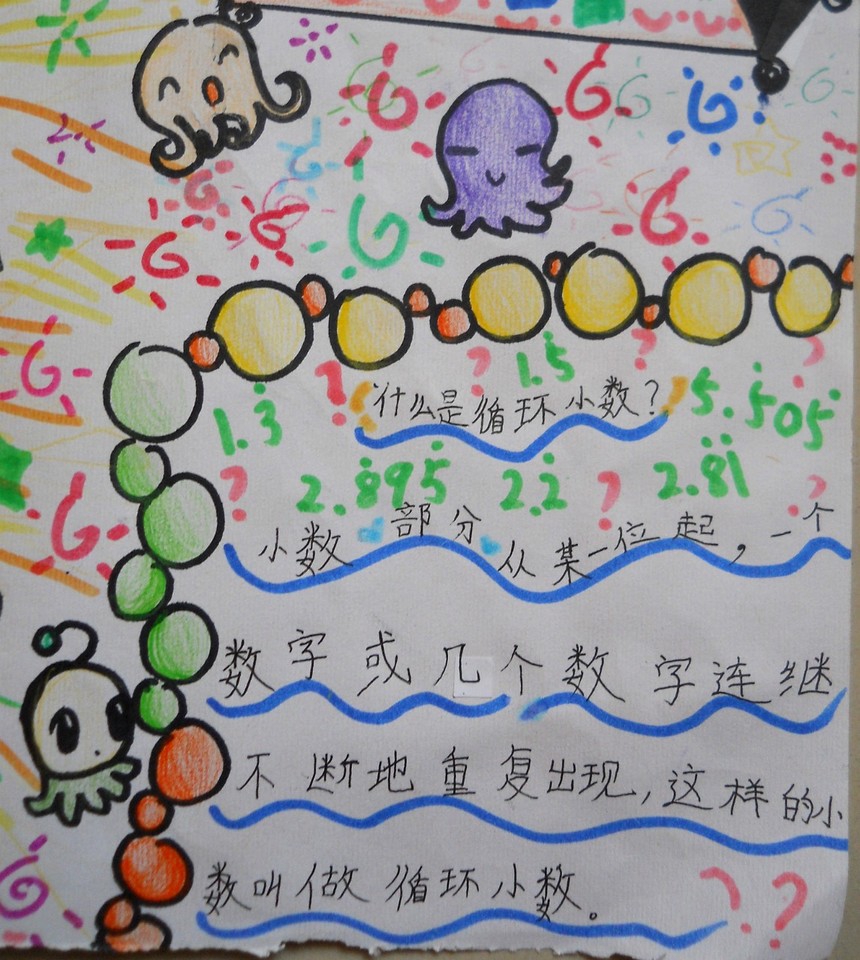 ? ? 1.5̇ ? ?
1.3̇ 什么是循环小数? 5.5̇05̇
? 2.8̇95̇ 2.2̇ ? 2.8̇1̇ ?
小数部分从某一位起，一个
数字或几个数字连继
不断地重复出现，这样的小
数叫做循环小数。 ? ?